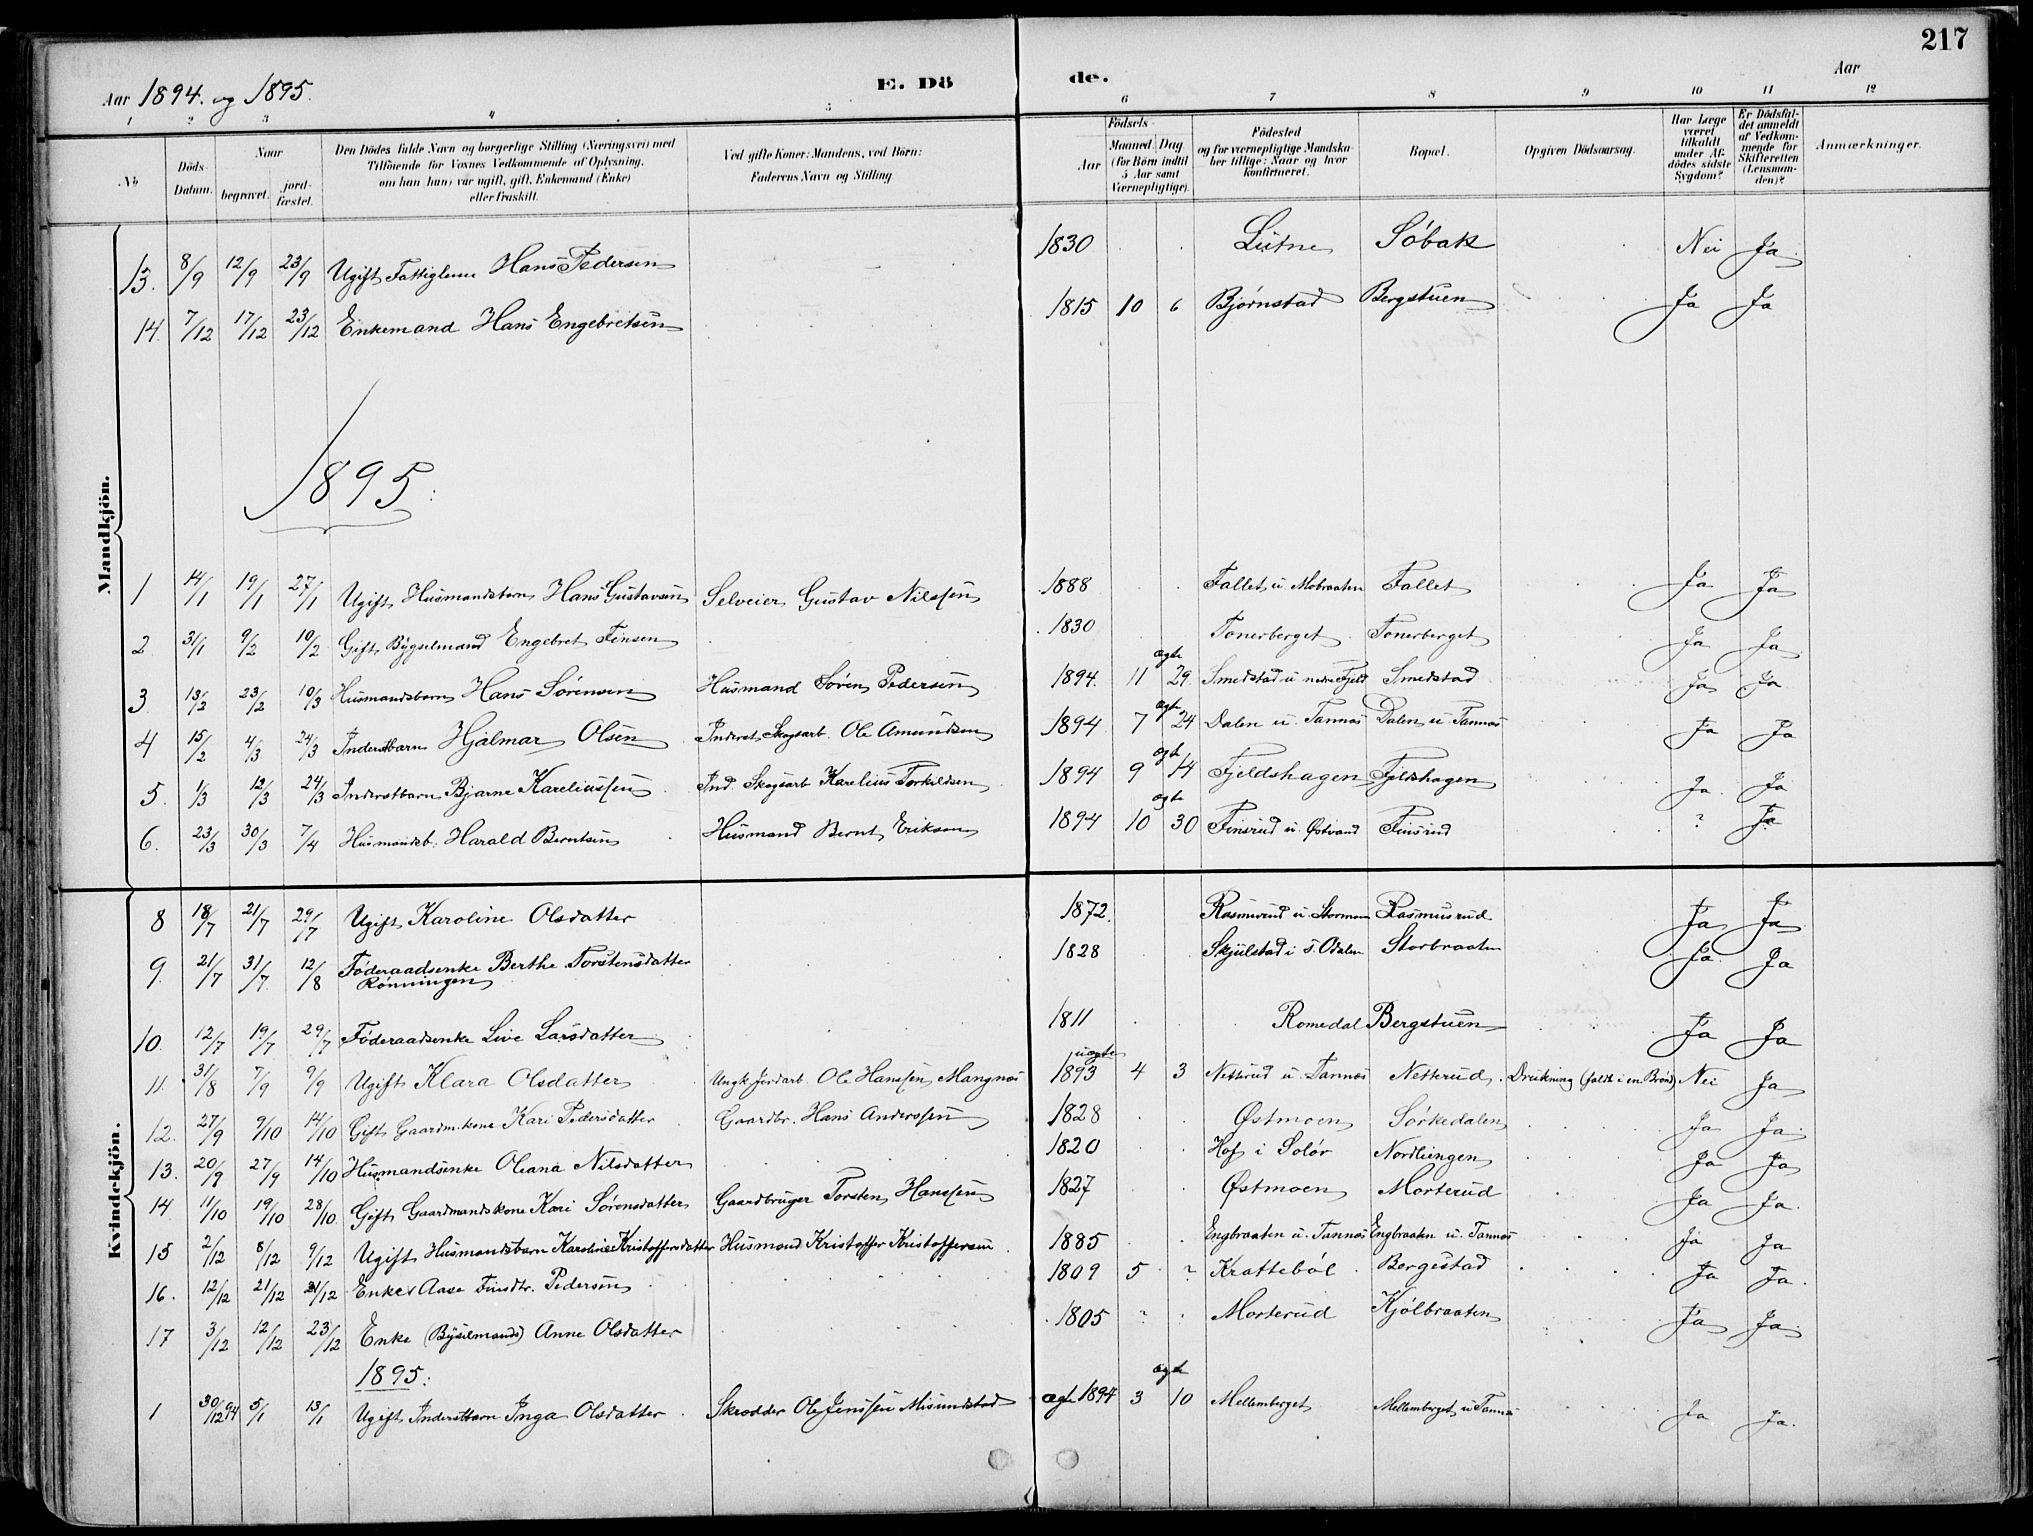 217
Aar 1894. og 1895.
E. Dö de.
Aar
1 2 3 4 5 6 7 8 9 10 11 12
No
Döds-Datum.
Naar
begravet.
jord-fæstet.
Den Dödes fulde Navn og borgerlige Stilling (Næringsvei) med
Tilföiende for Voxnes Vedkommende af Oplysning,
om han (hun) var ugift, gift, Enkemand (Enke)
eller fraskilt.
Ved gifte Koner: Mandens, ved Börn:
Faderens Navn og Stilling.
Födsels-
Aar
Maaned. Dag
(for Börn indtil
5 Aar samt
Værnepligtige).
Födested
og for værnepligtige Mandska-
ber tillige: Naar og hvor
konfirmeret.
Bopæl.
Opgiven Dödsaarsag.
Har Læge
været
tilkaldt
under Af-
dödes sidste
Sygdom?
Er Dödsfal-
det anmeldt
af Vedkom-
mende for
Skifteretten
(Lensman-
den)?
Anmærkninger.
Mandkjön.
13. 8/9 12/9 23/9 Ugift Fattiglem Hans Pedersen 1830 Lutne Söbak Nei Ja
14. 7/12 17/12 23/12 Enkemand Hans Engebretsen 1815 10 6 Bjørnstad Bergstuen Ja Ja
1895:
1 14/1 19/1 27/1 Ugift Husmandsbarn Hans Gustavsen Selveier Gustav Nilssen 1888 Fallet u. Mobraaten Fallet Ja Ja
2 31/1 9/2 10/2 Gift Bygselmand Engebret Jensen 1830 Tonerberget Tonerberget Ja Ja
3 13/2 23/2 10/3 Husmandsbarn Hans Sörensen Husmand Sören Pedersen 1894. 11 ægte 29 Smedstad u. nedre Fjeld Smedstad Ja Ja
4 15/2 4/3 24/3 Inderstbarn Hjalmar Olsen Inderst Skogsarb. Ole Amundsen 1894 7 ægte 24 Dalen u. Tannæs Dalen u. Tannæs Ja Ja
5. 1/3 12/3 24/3 Inderstbarn Bjarne Kareliussen Ind. Skogsarb Karelius Torkildsen 1894 9 ægte 14 Fjeldshagen Fjeldshagen Ja Ja
6. 23/3 30/3 7/4 Husmandsb. Harald Berntsen Husmand Bernt Eriksen 1894 10 ægte 30 Finsrud u. Østvand Finsrud ? Ja
Kvindekjön.
8 18/7 21/7 29/7 Ugift Karoline Olsdatter 1872. Rasmusrud u Stormoen Rasmusrud Ja Ja
9. 21/7 31/7 12/8 Föderaadsenke Berthe Torstensdatter
Rönningen 1828 Skjülstad i S. Odalen Storbraaten Ja Ja
10. 12/7 19/7 29/7 Föderaadsenke Live Larsdatter 1811 Romedal Bergstuen Ja Ja
11. 31/8 7/9 9/9 Ugift Klara Olsdatter Ungk. Jordarb. Ole Hanssen Mangnæs uægte 1893 4 3 Netterud u. Tannæs Netterud Drukning (faldt i en Brønd) Nei Ja
12. 27/9 9/10 14/10 Gift Gaardm.kone Kari Pedersdatter Gaardbr. Hans Anderssen 1828 Østmoen Sörkedalen Ja Ja
13. 20/9 27/9 14/10 Husmandsenke Oleana Nilsdatter 1820 Hof i Solör Nordlüngen Ja Ja
14. 11/10 19/10 28/10 Gift Gaardmandskone Kari Sörensdatter Gaardbruger Torsten Hanssen 1827 Østmoen Morterud Ja Ja.
15 2/12 8/12 9/12 Ugift Husmandsbarn Karoline Kristoffersdatter Husmand Kristoffer Kristoffersen 1885 Engbraaten u. Tannæs Engbraaten u. Tannæs Ja Ja
16. 12/12 21/12 21/12 Enke Aase Finsdtr. Pedersen 1809 5 ? Kratteböl Bergestad Ja Ja.
17 3/12 12/12 23/12 Enke (Bysselmands) Anne Olsdatter 1805 ? Morterud Kjölbraaten Ja Ja
1895:
1 30/12 94 5/1 13/1 Ugift Inderstbarn Inga Olsdatter Skrædder Ole Jenssen Misundstad ægte 1894 3 ægte 10 Mellemberget Mellemberget u Tannæs Ja Ja.